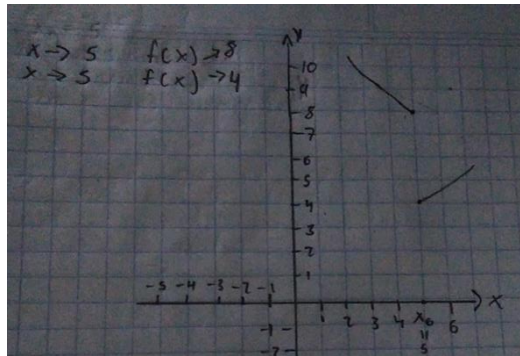 x → 5 f(x) → 8
x → 5 f(x) → 4
y
10
9
8
7
6
5
4
3
2
1
-5 -4 -3 -2 -1
x
1 2 3 4 x₀ 6
=
5
-1
-2